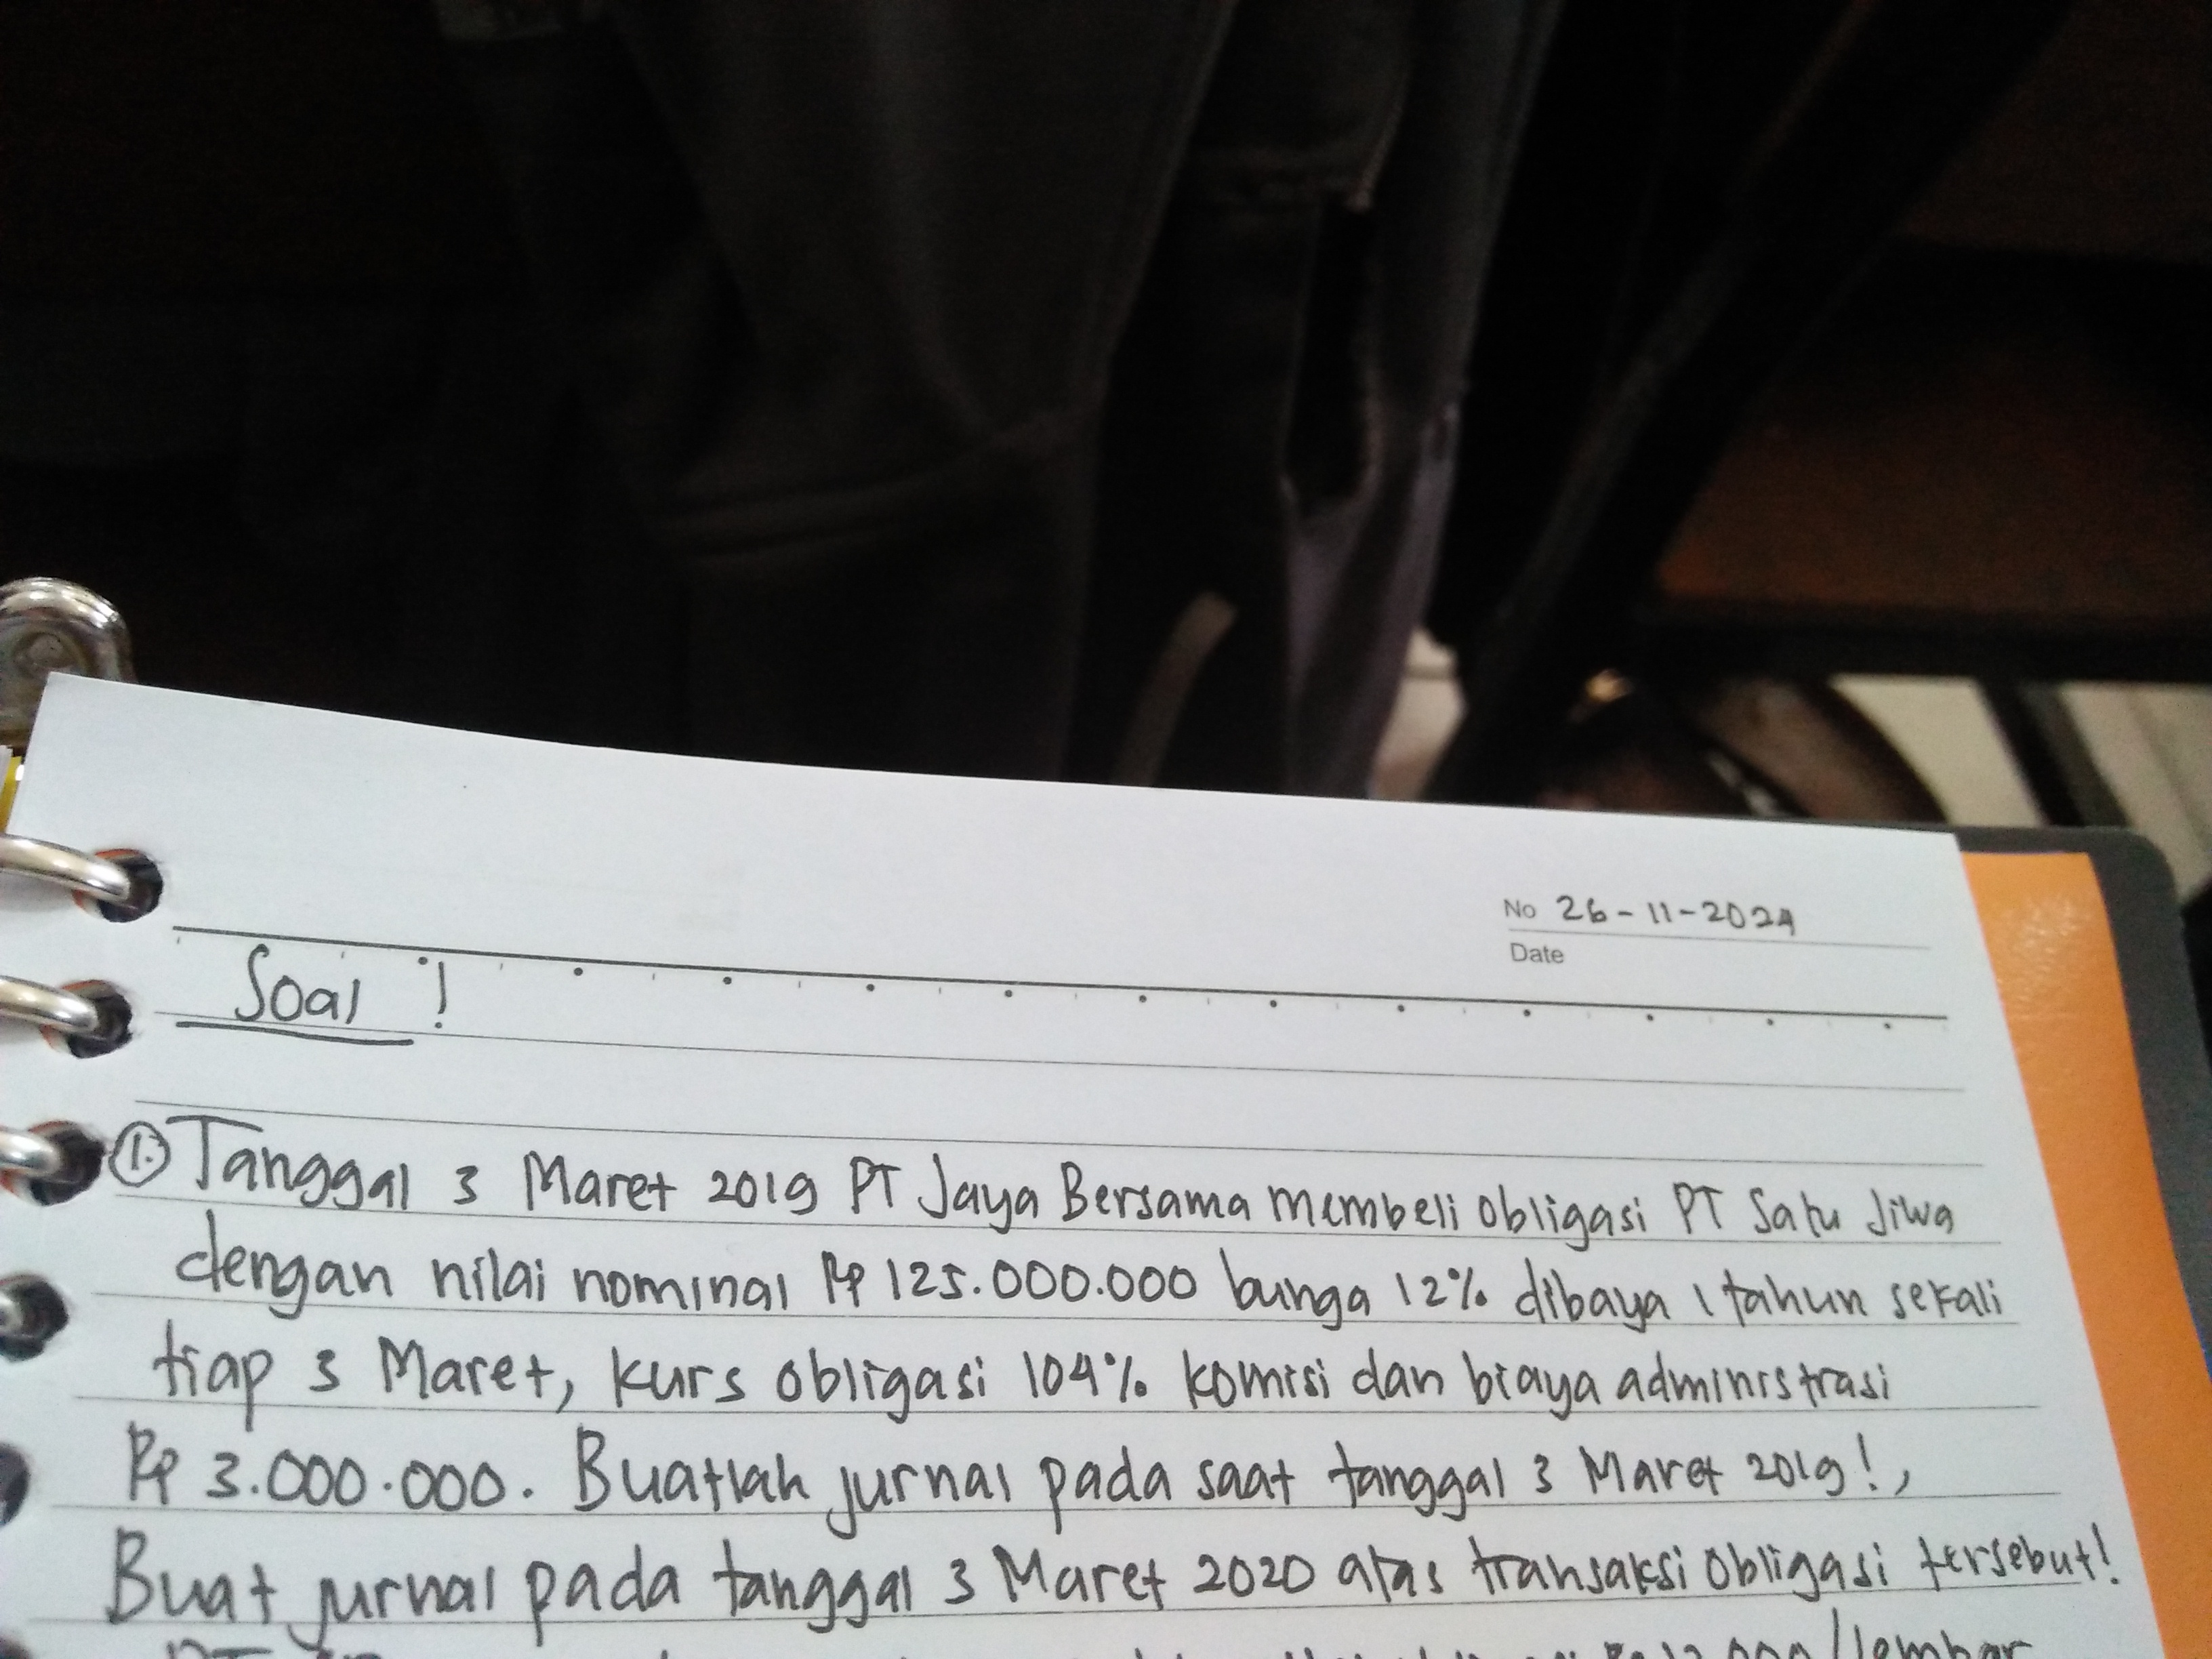 No 26-11-2024
Date
Soal !
1. Tanggal 3 Maret 2019 PT Jaya Bersama membeli obligasi PT Satu Jiwa
dengan nilai nominal Rp 125.000.000 bunga 12% dibaya 1 tahun sekali
tiap 3 Maret, kurs obligasi 104% komisi dan biaya administrasi
Rp 3.000.000. Buatlah jurnal pada saat tanggal 3 Maret 2019!,
Buat jurnal pada tanggal 3 Maret 2020 atas transaksi obligasi tersebut!
/lembar